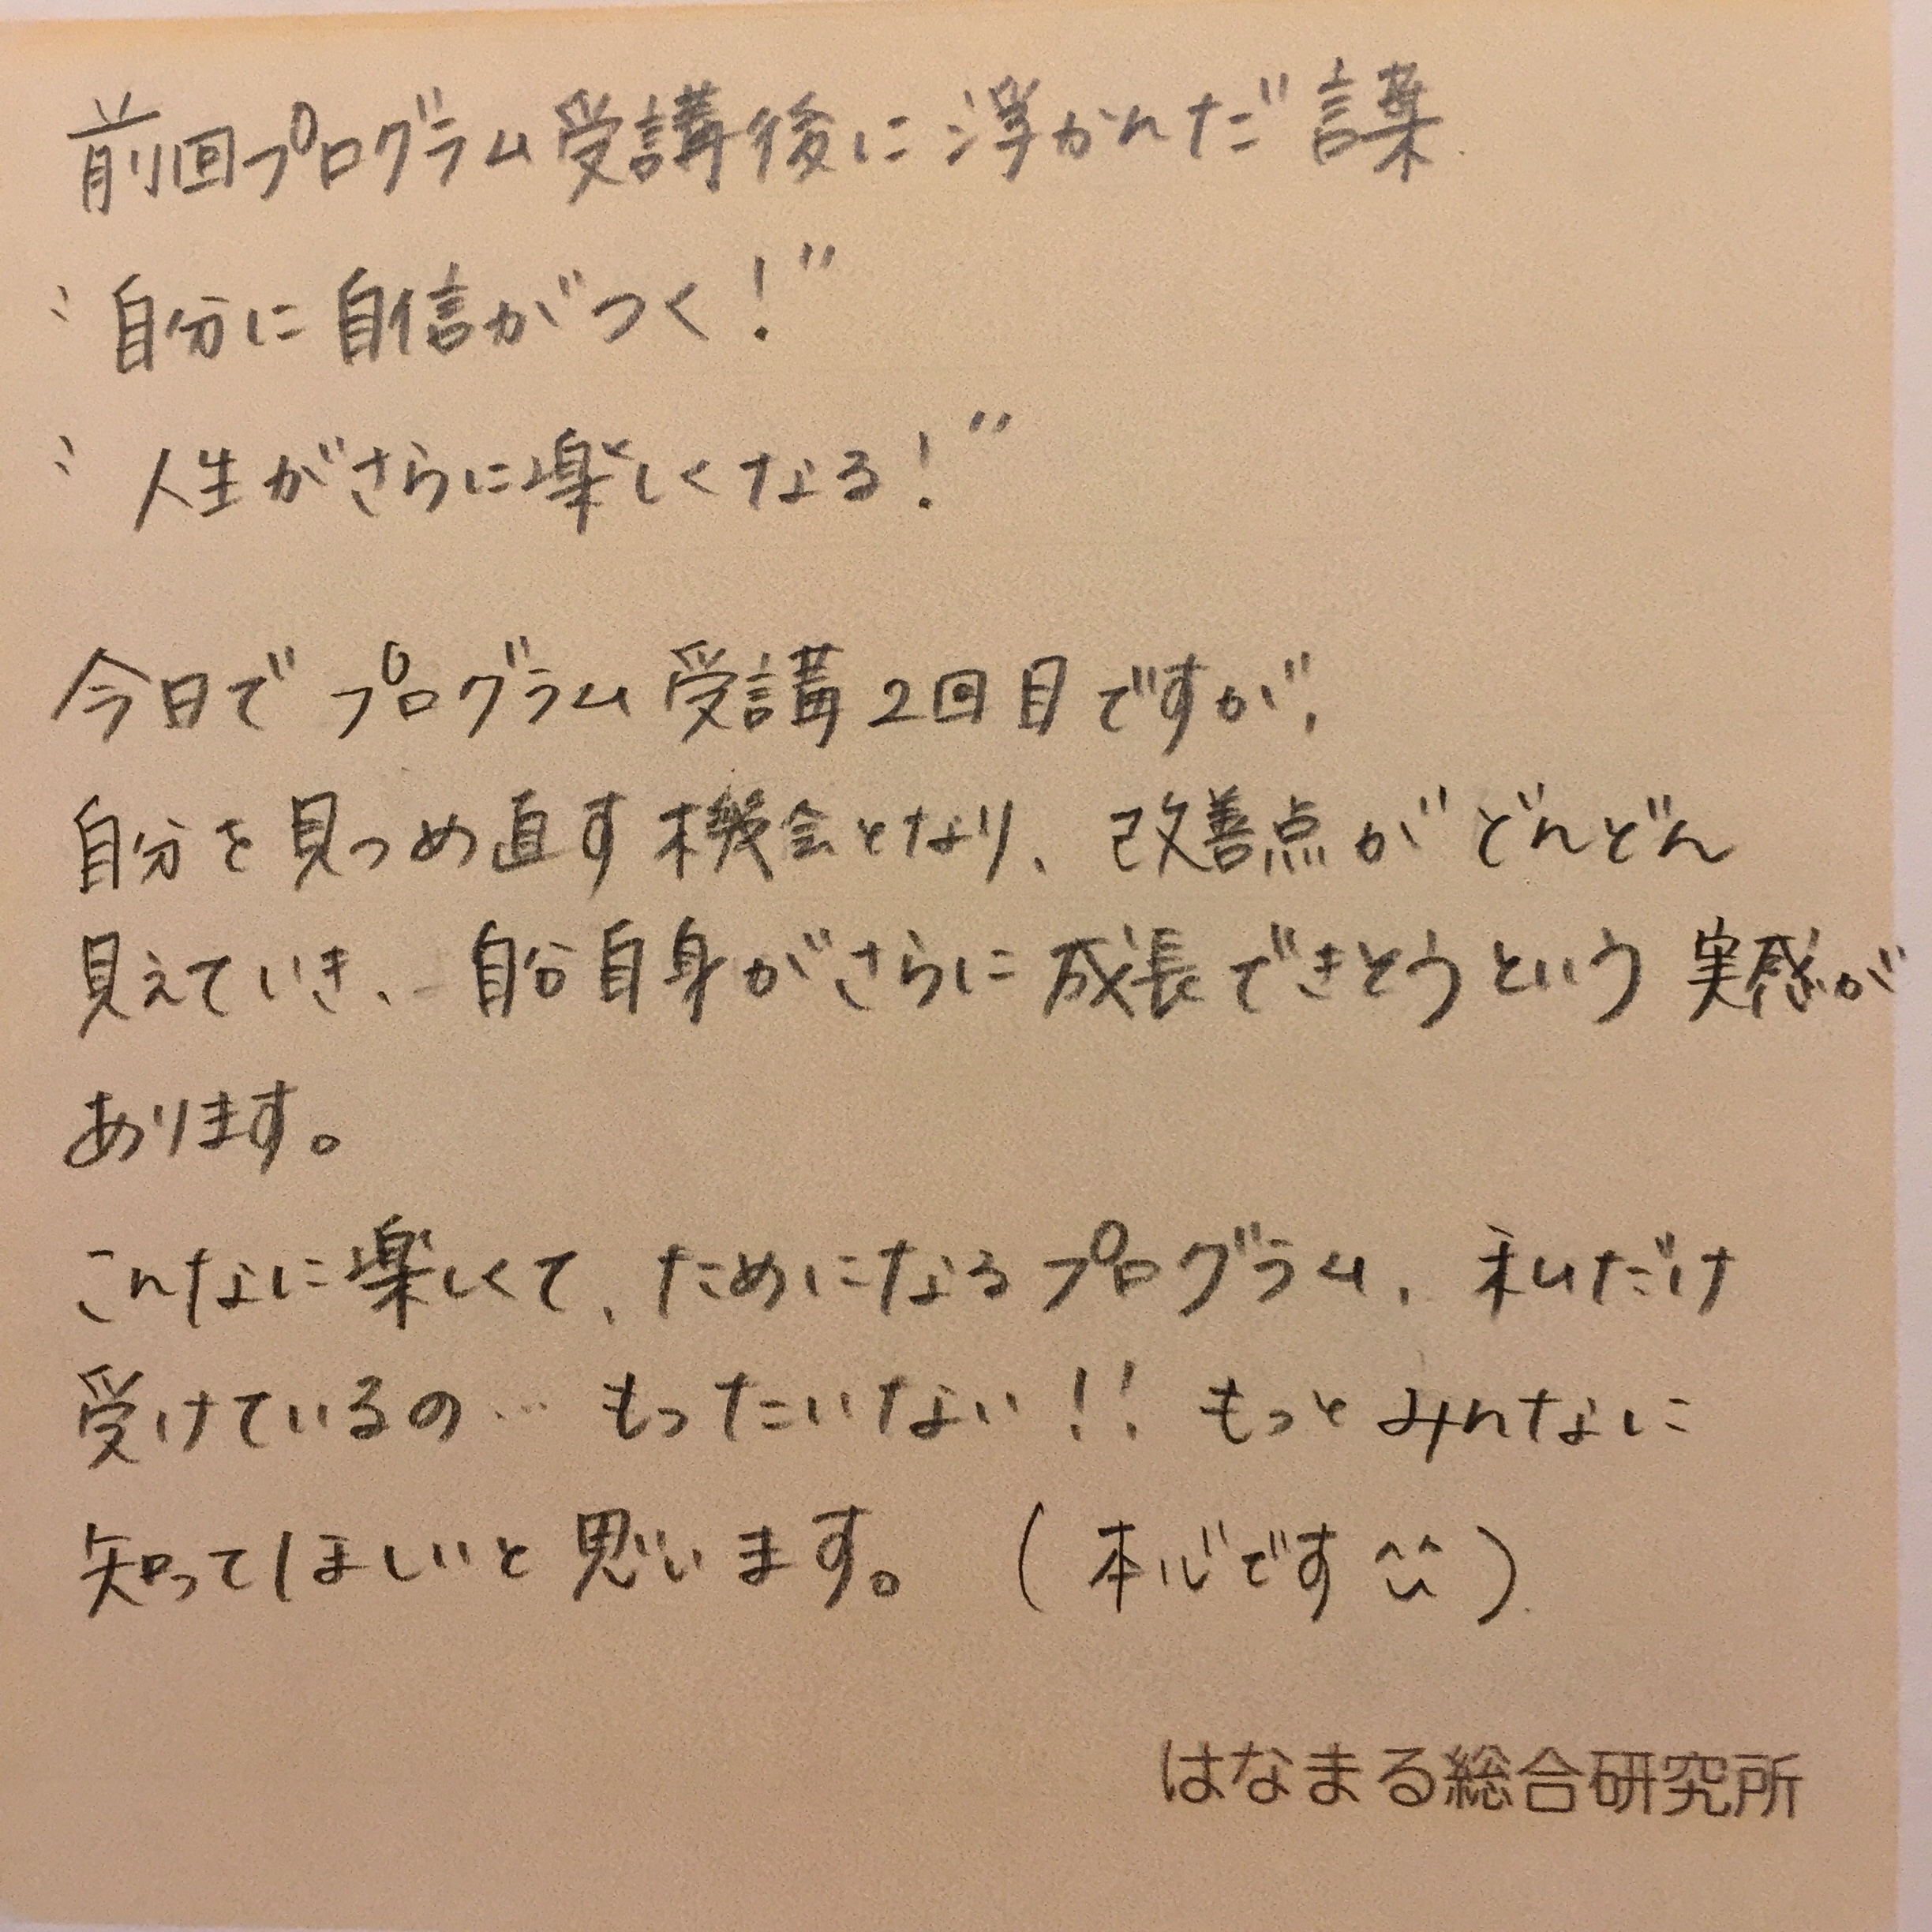 前回プログラム受講後に浮かんだ言葉
"自分に自信がつく!"
"人生がさらに楽しくなる!"
今日でプログラム受講2回目ですが、
自分を見つめ直す機会となり、改善点がどんどん
見えていき、自分自身がさらに成長できそうという実感が
あります。
こんなに楽しくて、ためになるプログラム、私だけ
受けているの… もったいない!! もっとみんなに
知ってほしいと思います。(本心です^^)
はなまる総合研究所